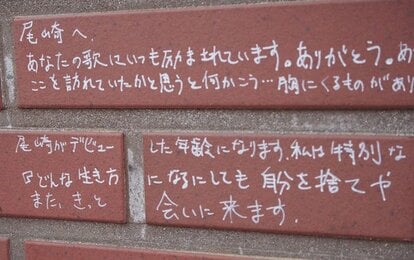 尾崎へ、
あなたの歌にいつも励まされています。ありがとう。あ
ここを訪れていたかと思うと何かこう…胸にくるものがあり
尾崎がデビュー した年齢になります。私は特別な
『どんな生き方 になるにしても自分を捨てや
また、きっと 会いに来ます.